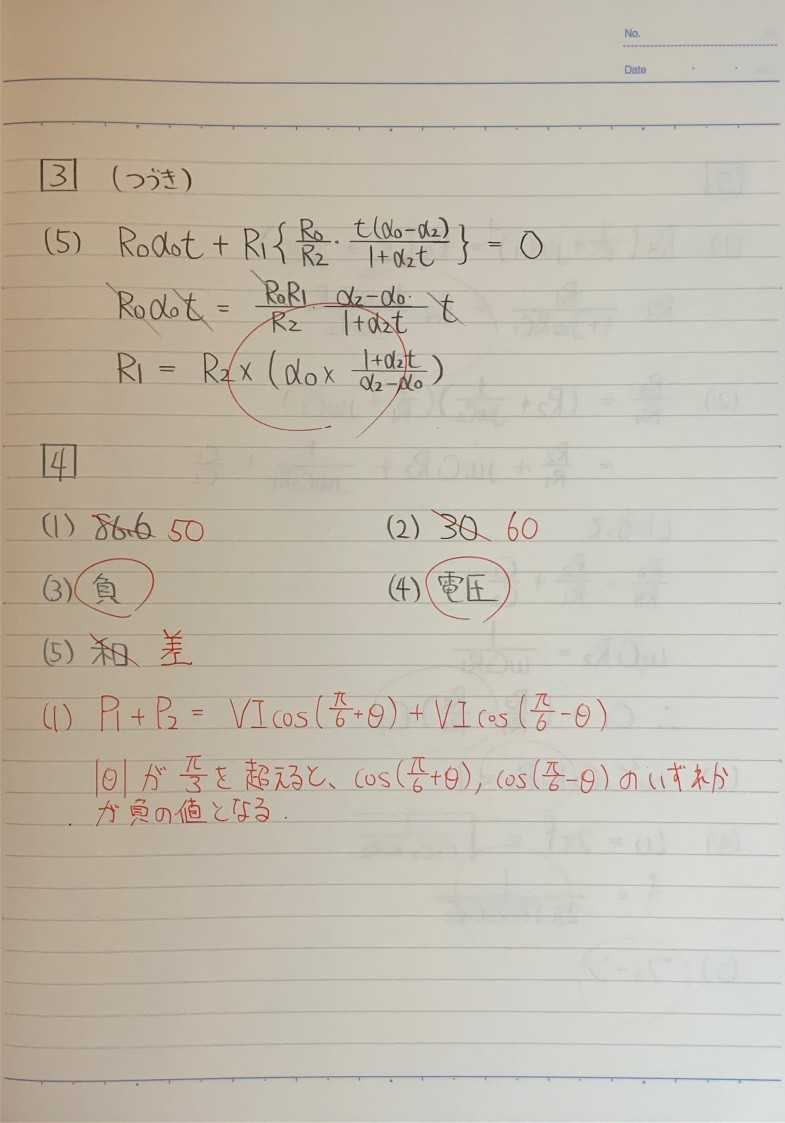 No.
Date
3 (つづき)
(5) R₀α₀t + R₁{R₀/R₂ · t(α₀-α₂)/(1+α₂t)} = 0
R₀α₀t = R₀R₁/R₂ · (α₂-α₀)/(1+α₂t) t
R₁ = R₂ × (α₀ × (1+α₂t)/(α₂-α₀))
4
(1) 86.6 50 (2) 30 60
(3) 負 (4) 電圧
(5) 和 差
(1) P₁ + P₂ = VI cos(π/6+θ) + VI cos(π/6-θ)
|θ| が π/3 を超えると、cos(π/6+θ), cos(π/6-θ) のいずれか
が負の値となる.